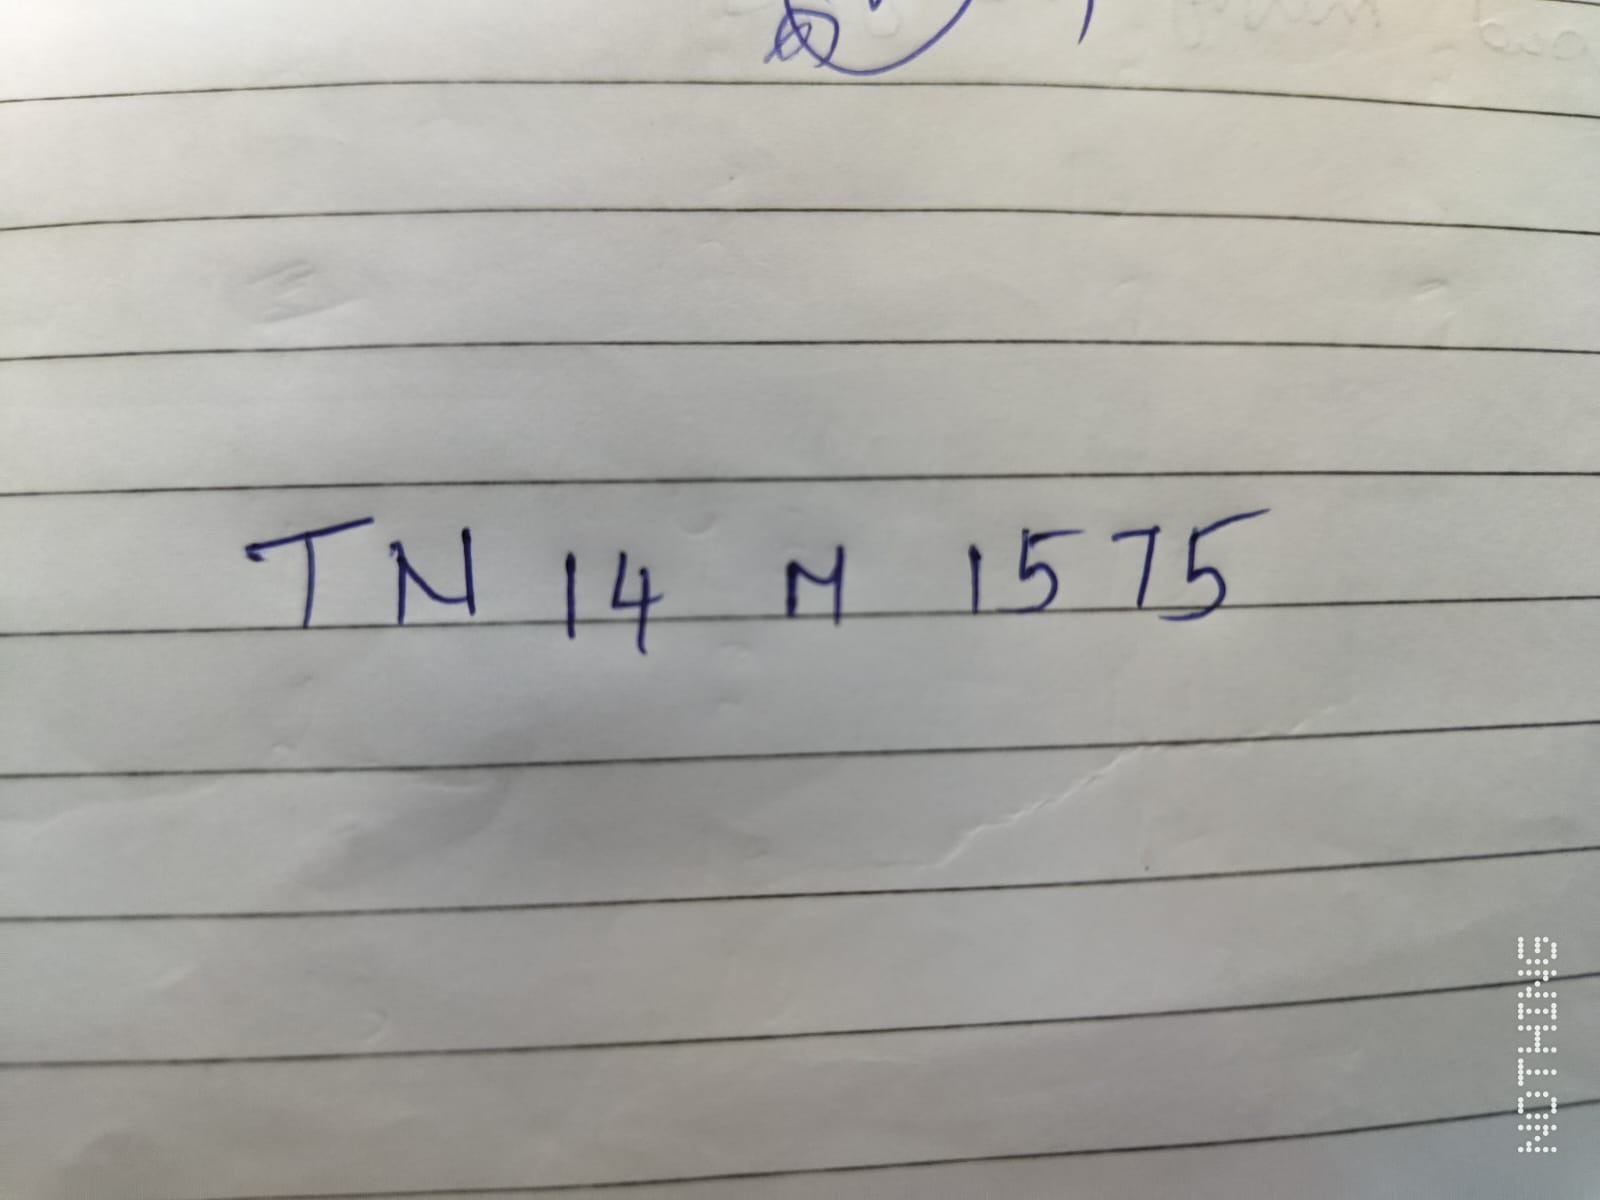 TN 14 M 1575
NOTHING